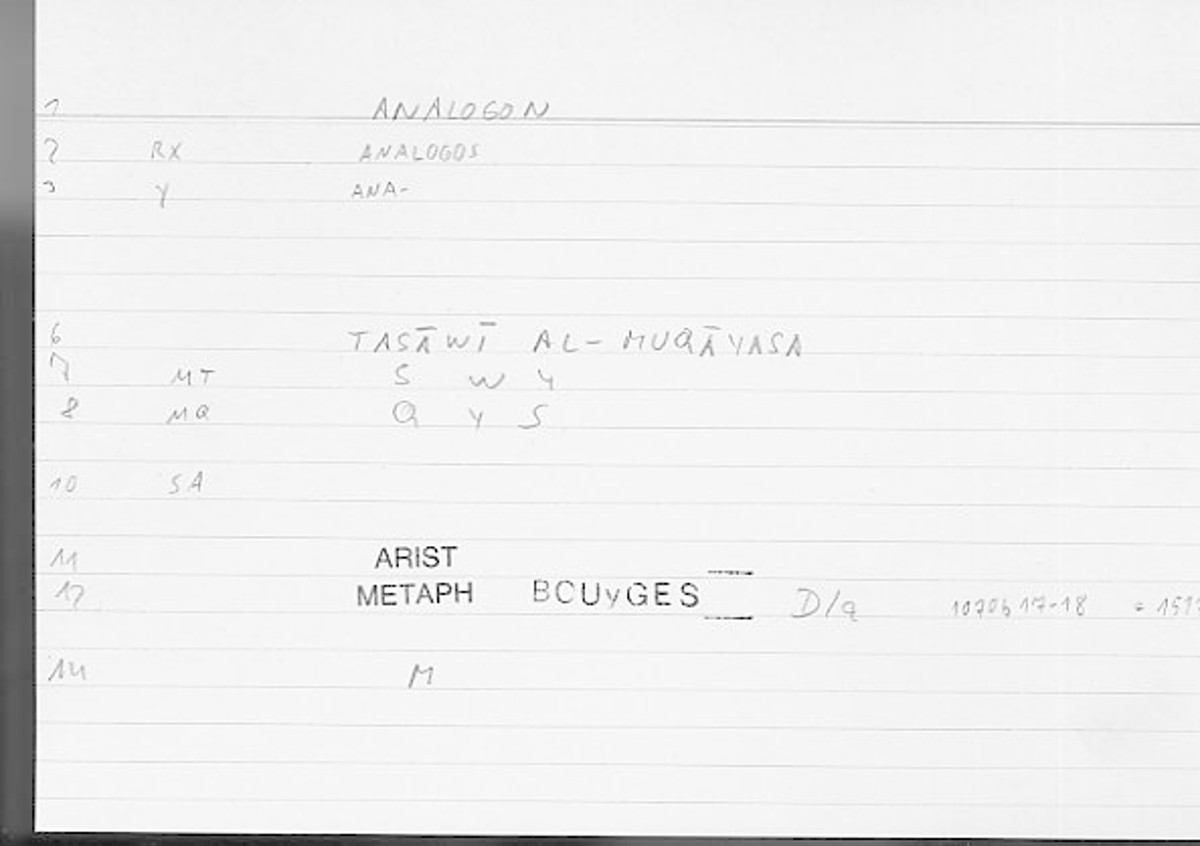 1 ANALOGON
2 RX ANALOGOS
3 Y ANA-
6 TASĀWĪ AL-MUQĀYASA
7 MT S W Y
8 MQ Q Y S
10 SA
11 ARIST
12 METAPH BOUyGES D/a 1070b17-18
14 M